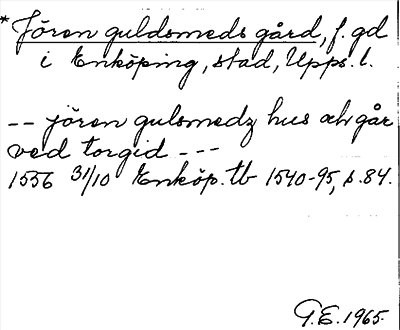 *Jören guldsmeds gård, f. gd
i Enköping, stad, Upps. l.
-- jören gulsmedz hus och går
ved torgid ---
1556 31/10 Enköp. tb 1540-95, s. 84.
G.E. 1965.